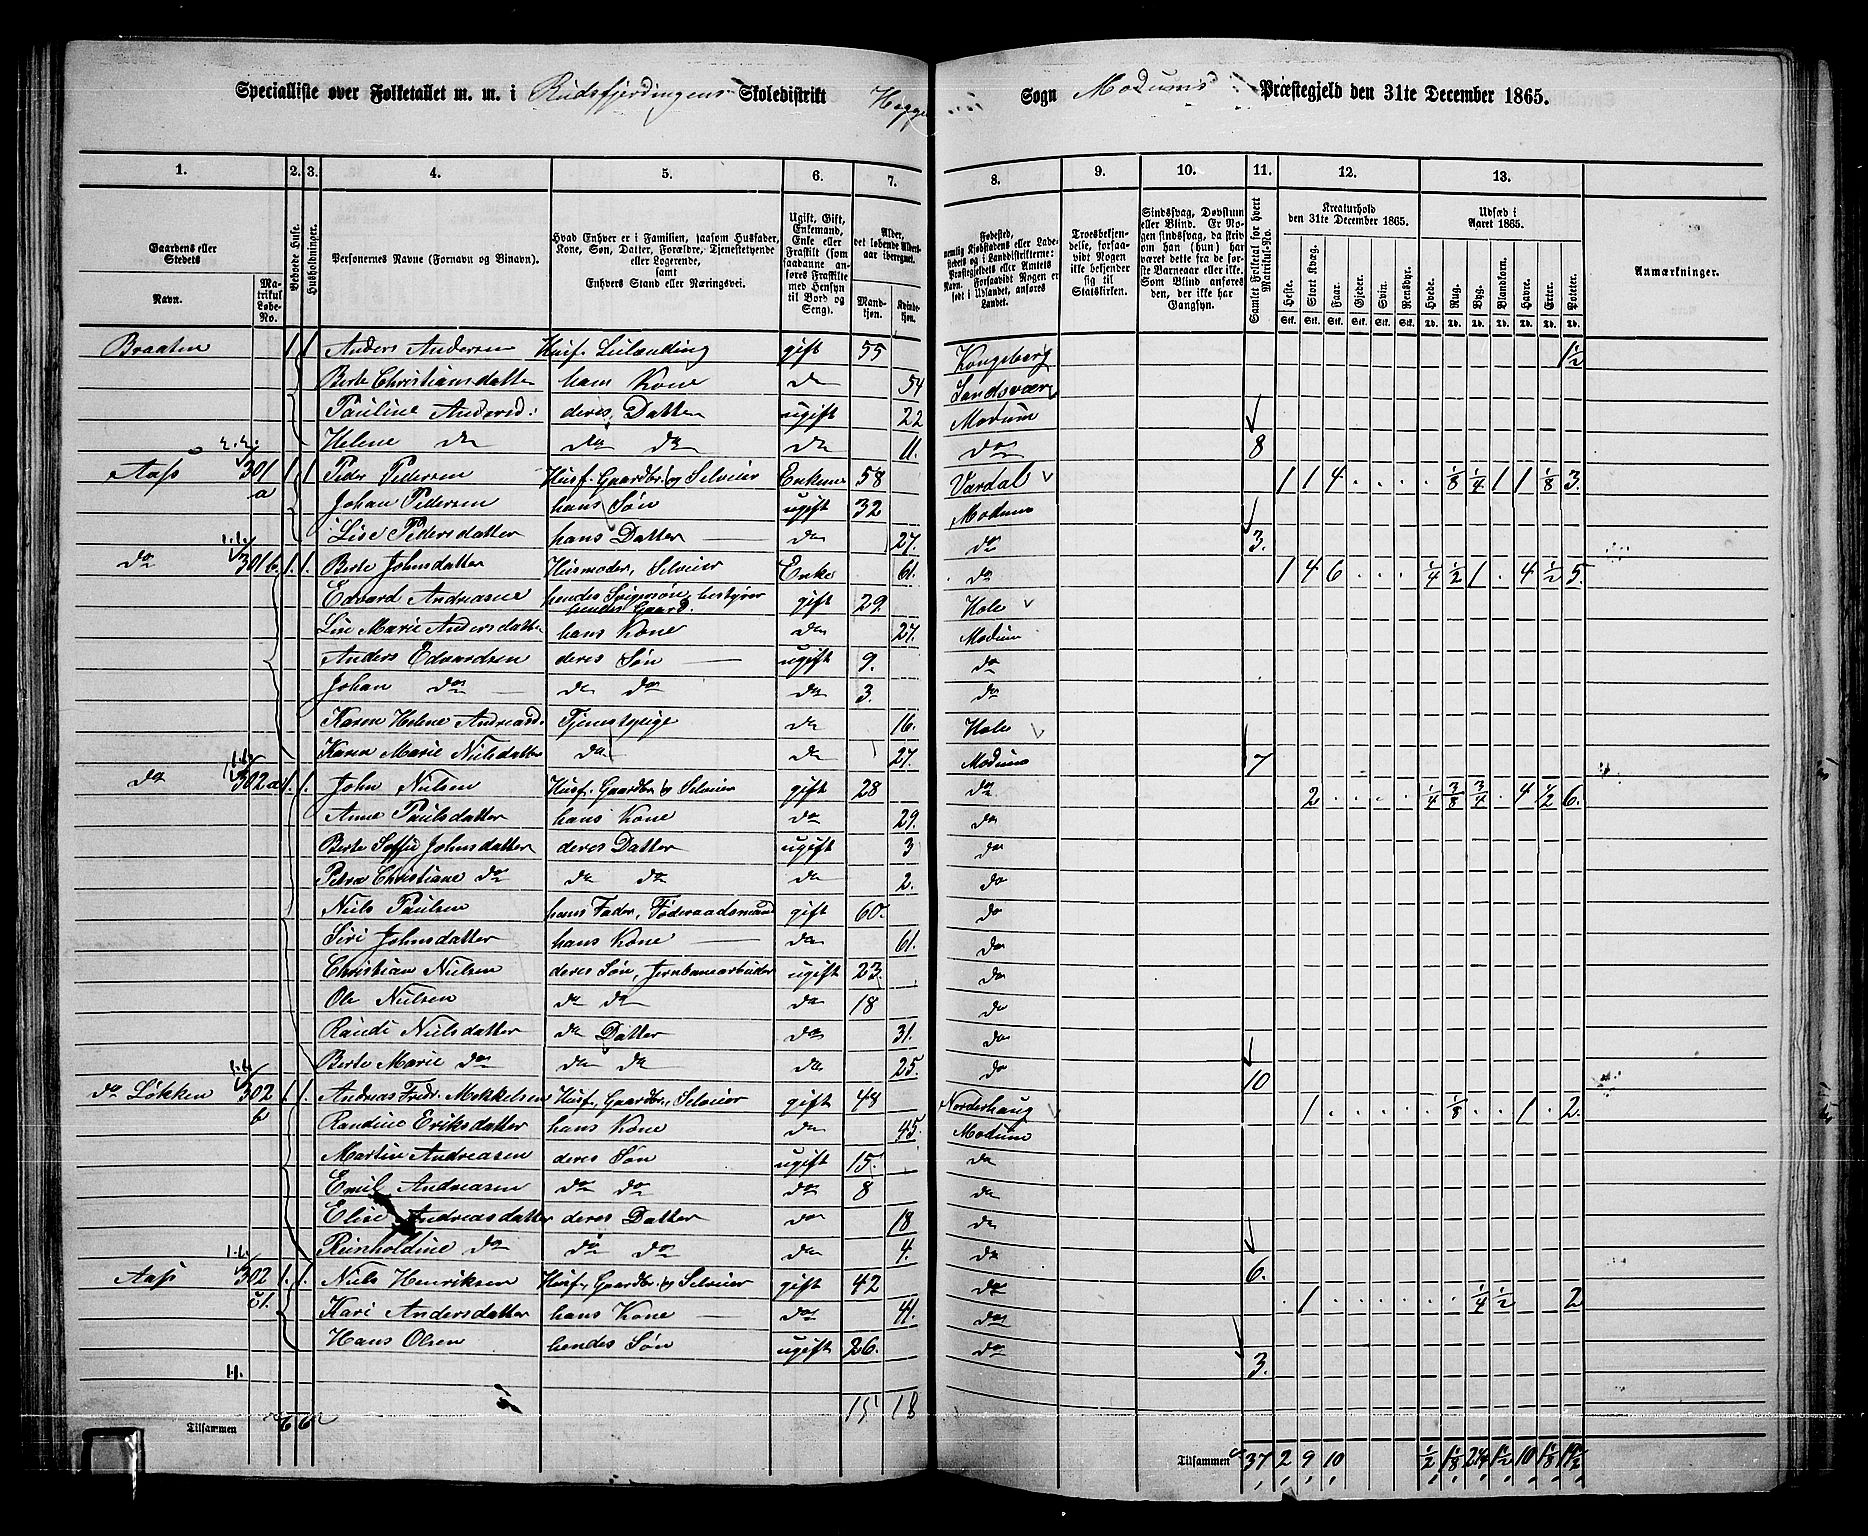 Specialliste over Folketallet m. m. i Rudsfjerdingens Skoledistrikt Hegge Sogn Modums Præstegjeld den 31te December 1865.
1. 2. 3. 4. 5. 6. 7. 8. 9. 10. 11. 12. 13.
Gaardens eller Stedets Navn. Matrikul Løbe-No. Beboede Huse. Husholdninger. Personernes Navne (Fornavn og Binavn). Hvad Enhver er i Familien, saasom Husfader, Kone, Søn, Datter, Forældre, Tjenestetyende eller Logerende, samt Enhvers Stand eller Næringsvei. Ugift, Gift, Enkemand, Enke eller Fraskilt (som saadanne anføres Fraskilte med Hensyn til Bord og Seng). Alder, det løbende Aldersaar iberegnet. Mandkjøn. Kvindekjøn.
Fødested, Troesbekjendelse, forsaavidt Nogen ikke bekjender sig til Statskirken. Sindssvag, Døvstum eller Blind. Er Nogen sindssvag, da skrives om han (hun) har været dette fra de første Barneaar eller ikke. Som Blind anføres den, der ikke har Gangsyn. Samlet Folketal for hvert Matrikul-No. Kreaturhold den 31te December 1865. Heste. Stort Kvæg. Faar. Gjeder. Svin. Rensdyr. Udsæd i Aaret 1865. Hvede. Rug. Byg. Blandkorn. Havre. Erter. Poteter. Anmærkninger.
Braaten 1 1 Anders Andersen Husf. Leilænding gift 55 Kongsberg 1½
Berte Christiansdatter hans Kone do 54 Sandsvær
Pauline Andersd: deres Datter ugift 22 Modum
Helene do do do do 11. do 8
Aass 301 a 1 1 Peder Pedersen Husf. Gaardbr. og Selveier Enkem 58 Vardal 1 1 4 . . . . 1/8 1/4 1 1 1/8 3.
Johan Pedersen hans Søn ugift 32 Modum
Lise Pedersdatter hans Datter do 27. do 3.
do 301 b 1. 1. Berte Johnsdatter Husmoder, Selveier Enke 61. do 1 4 6 . . . 1/4 1/2 1 . 4 1/2 5.
Edvard Andreasen hendes Svigersøn, bestyrer hendes Gaard. gift 29 Hole
Lise Marie Andersdatter hans Kone do 27. Modum
Anders Edvardsen deres Søn ugift 9. do
Johan do do do do 3. do
Karen Helene Andreasd. Tjenestpige do 16. Hole
Karen Marie Nielsdatter do do 27. Modum 7
do 302 a 1. 1. John Nielsen Husf. Gaardbr. og Selveier gift 28 do 2 . . . . 1/4 3/8 3/4 . 4 1/2 6.
Anne Paulsdatter hans Kone do 29. do
Berte Soffie Johnsdatter deres Datter ugift 3 do
Petra Christiane do do do do 2. do
Niels Paulsen hans Fader, Føderaadsmand gift 60. do
Siri Johnsdatter hans Kone do 61. do
Christian Nielsen deres Søn, Jernbanearbeider ugift 23. do
Ole Nielsen do do do 18 do
Randi Nielsdatter do Datter do 31. do
Berte Marie do do do do 25. do 10
do Løkken 302 b 1. 1. Andreas Fredr. Mekkelsen Husf. Gaardbr., Selveier gift 48 Norderhaug 1 . . . . . 1/8 . . 1 . 2.
Randine Eriksdatter hans Kone do 45. Modum
Martin Andreasen deres Søn ugift 15. do
Emil Andreasen do do do 8 do
Elise Andreasdatter deres Datter do 18 do
Reinholdine do do do do 4. do 6.
Aass 302 1. 1. Niels Henriksen Husf. Gaardbr. og Selveier gift 42 do 1 . . . . . . 1/4 1/2 2
Kari Andersdatter hans Kone do 41. do
Hans Olsen hendes Søn ugift 26. do 3.
Tilsammen 6 6 15 18
Tilsammen 37 2 9 10 1/2 1 1/8 2¼ 1½ 10 1 1/8 19½